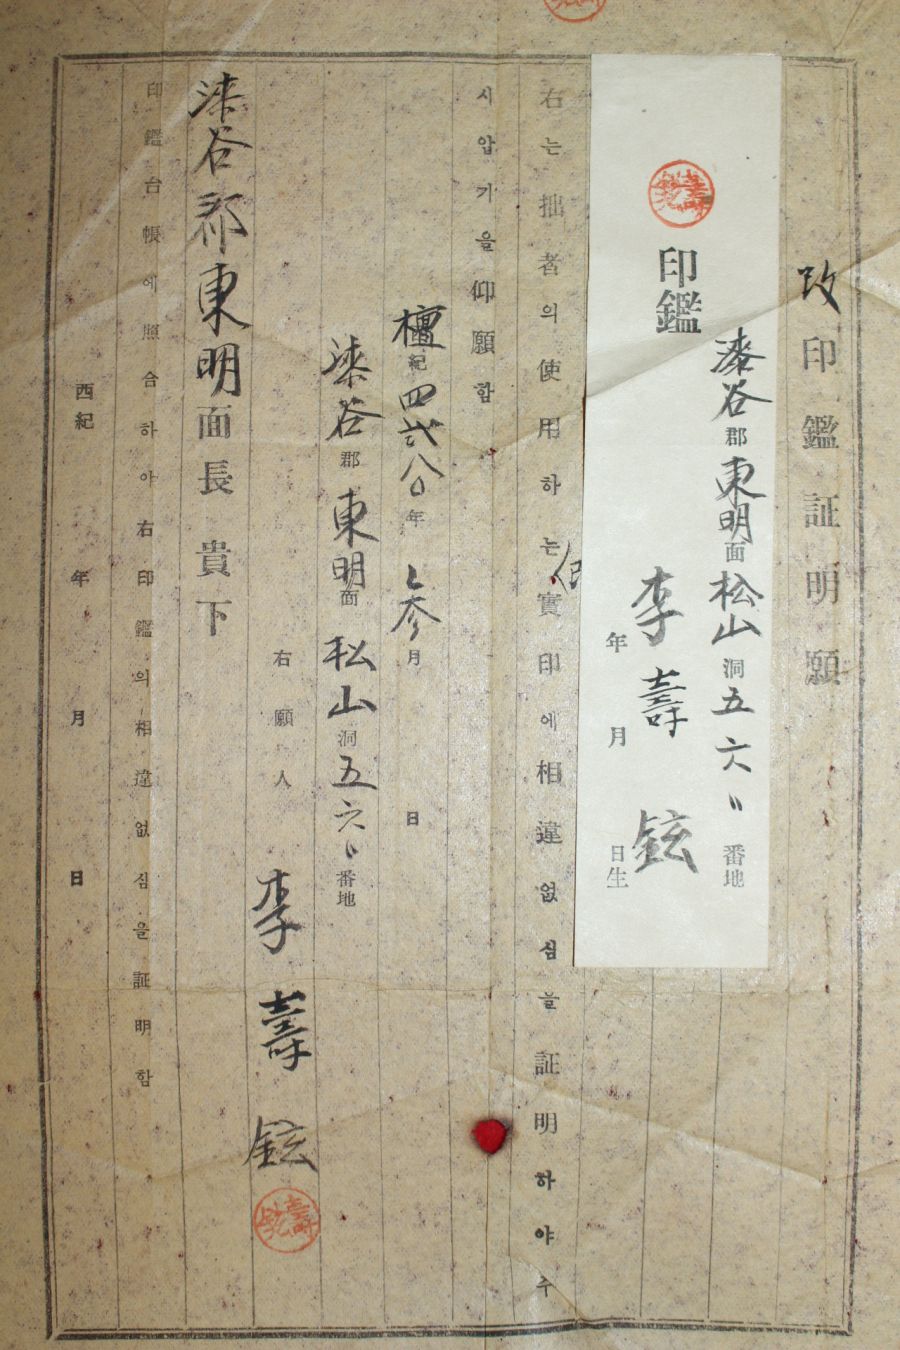 改印鑑証明願
漆谷郡東明面松山洞五六〃番地
印鑑
李壽鉉
年月日生
右는拙者의使用하는實印에相違없심을証明하야수
시압기을仰願함
檀紀四弍八〇年 參月 日
漆谷郡東明面松山洞五六〃番地
右願人 李壽鉉
漆谷郡東明面長 貴下
印鑑台帳에照合하아右印鑑의相違없심을証明함
西紀 年 月 日